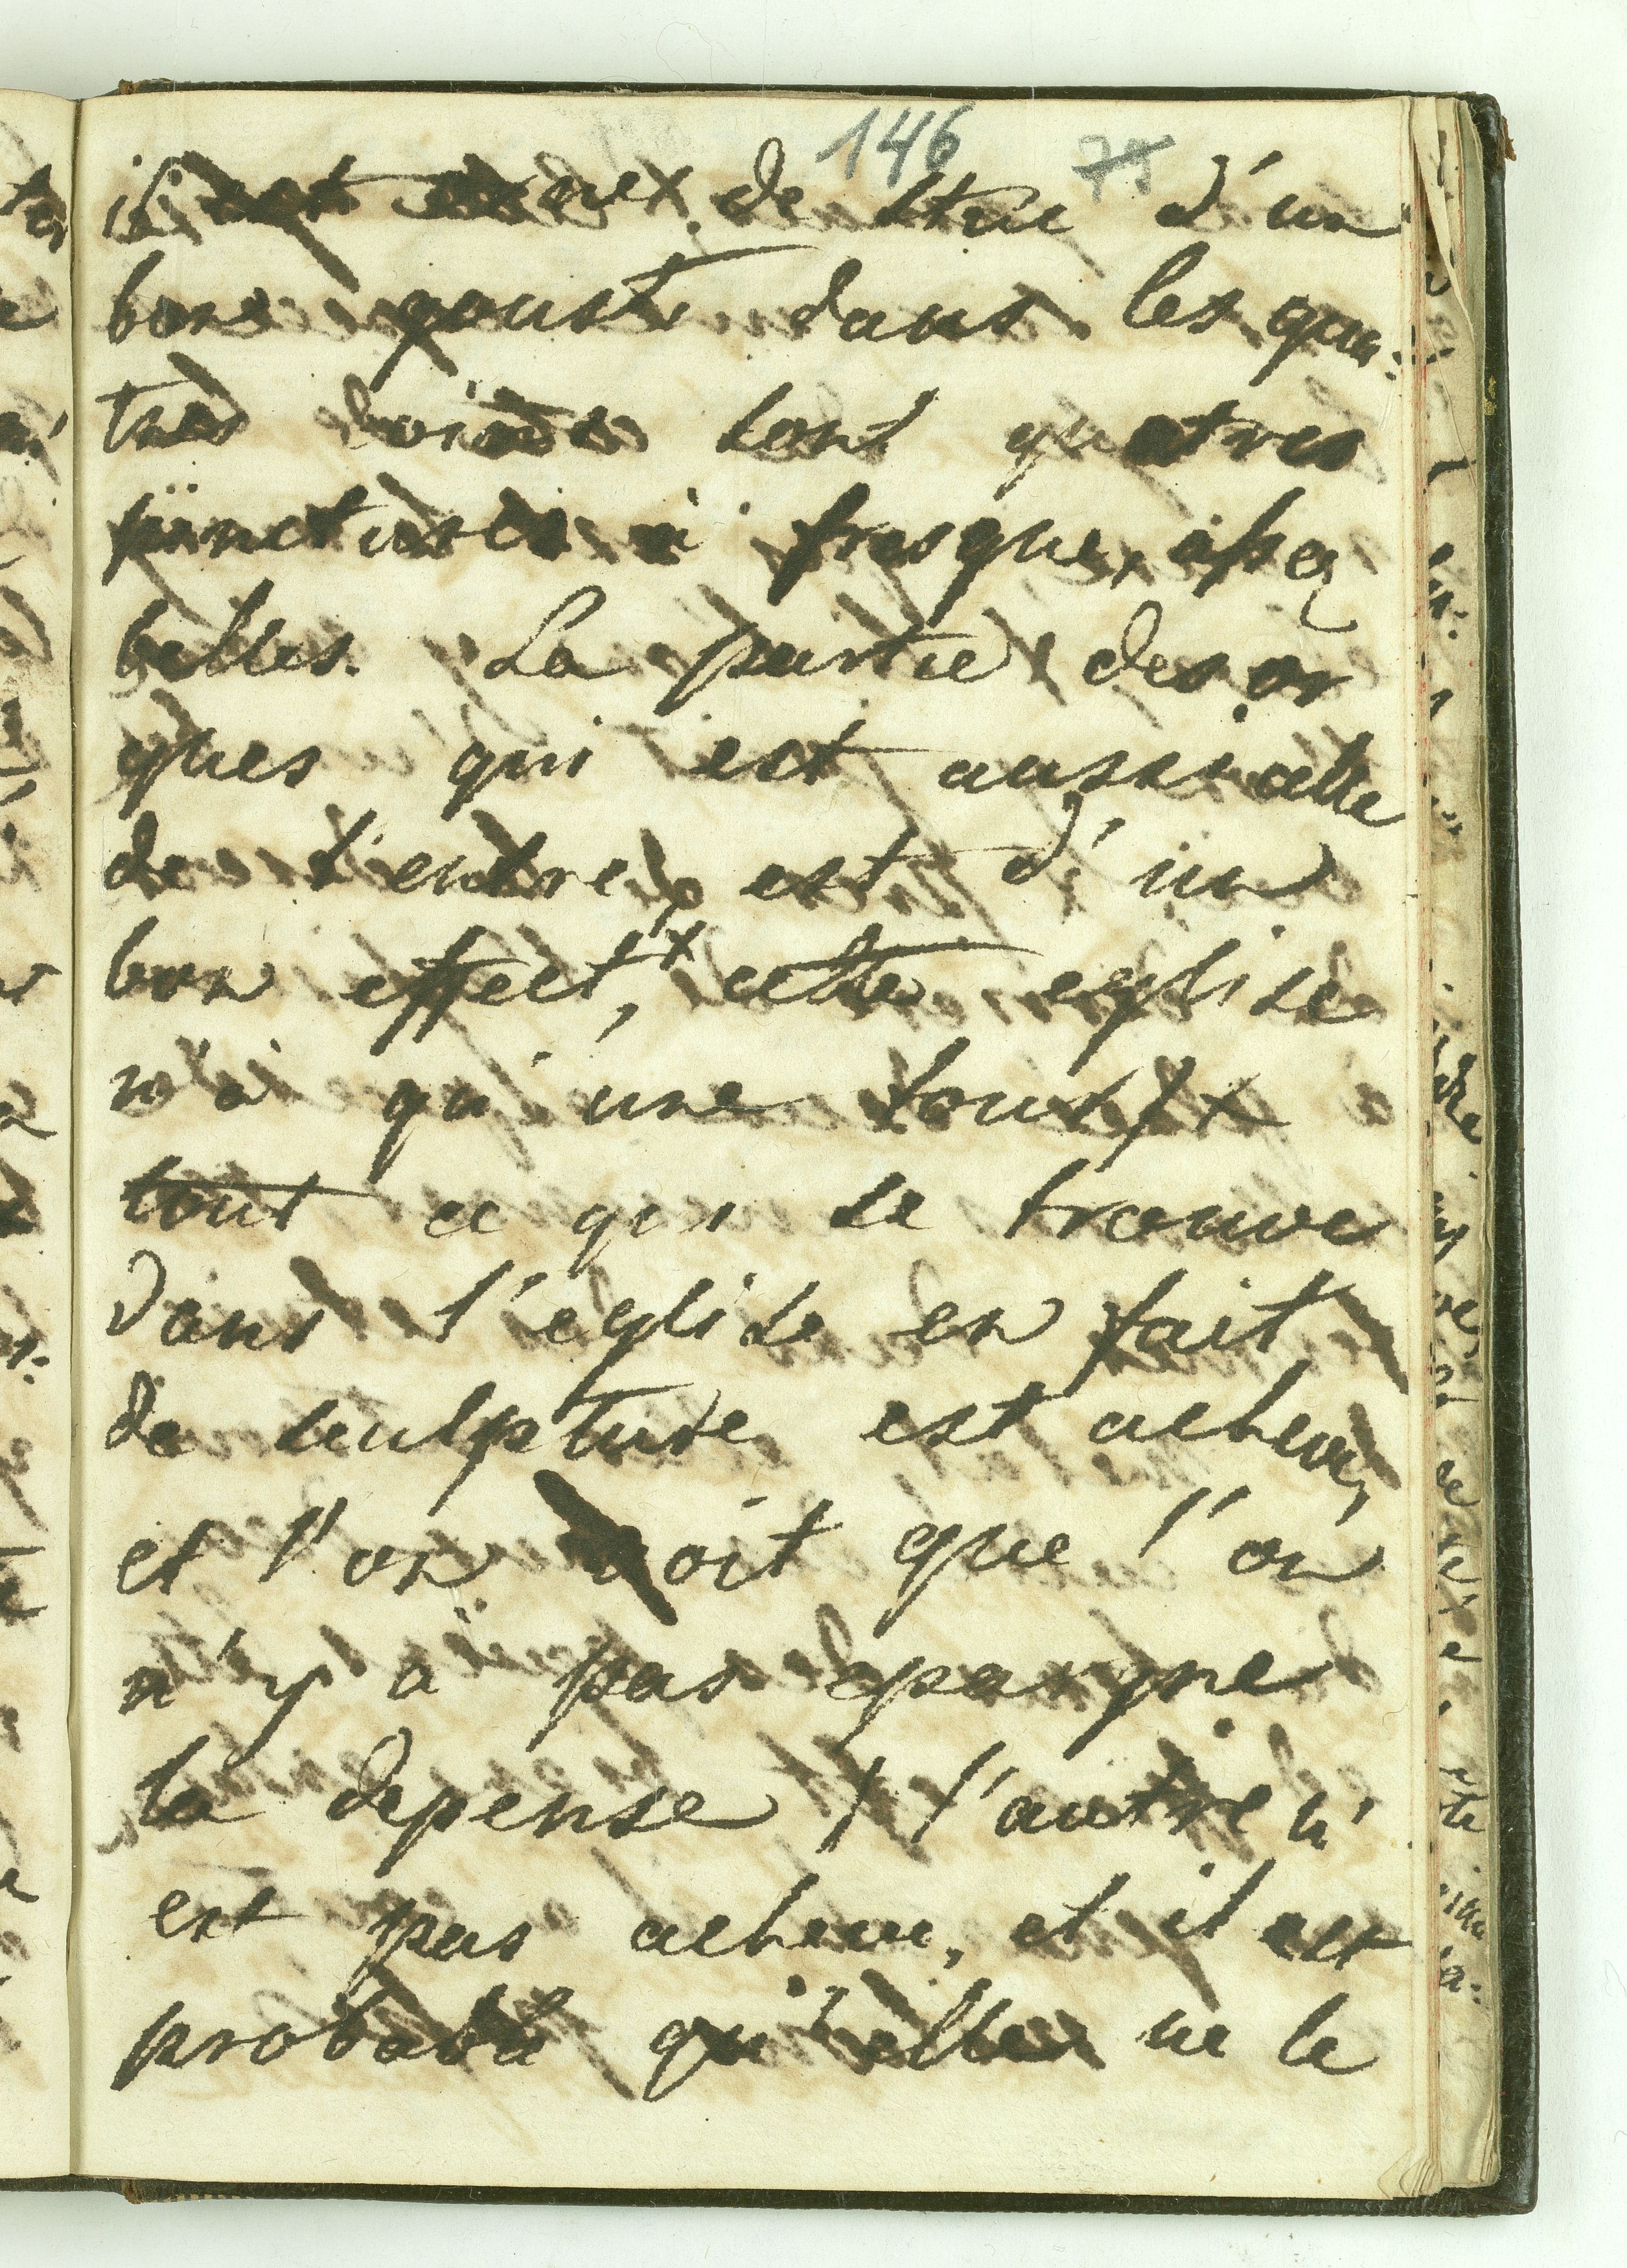 146 75
il est de stuc d'un
bone goust dans les qua:
tres sont quatres
pinctures à fresque, assez
belles. La partie des or
gues qui est aussi celle
de l'entre, est d'un
bon effect, cette eglise
n'a qu'une tour,
tout ce qui se trouve
dans l'eglise en fait
de sculpture est acheve,
et l'on voit que l'on
n'y a pas epargne
la depense / l'autre n'
est pas acheve, et il est
probable qu'elle ne le